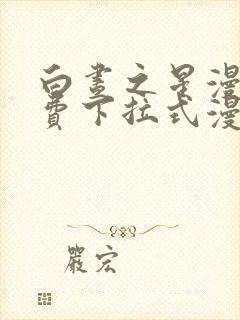 白晝之星漫
費下拉式漫
嚴宏